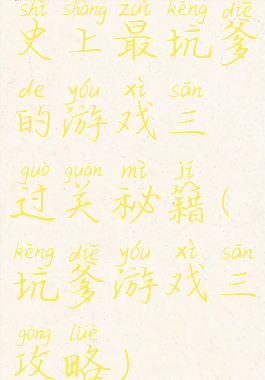 shǐ shàng zuì kēng diē
史上最坑爹
de yóu xì sān
的游戏三
guò guān mì jí
过关秘籍(
kēng diē yóu xì sān
坑爹游戏三
gōng lüè
攻略)